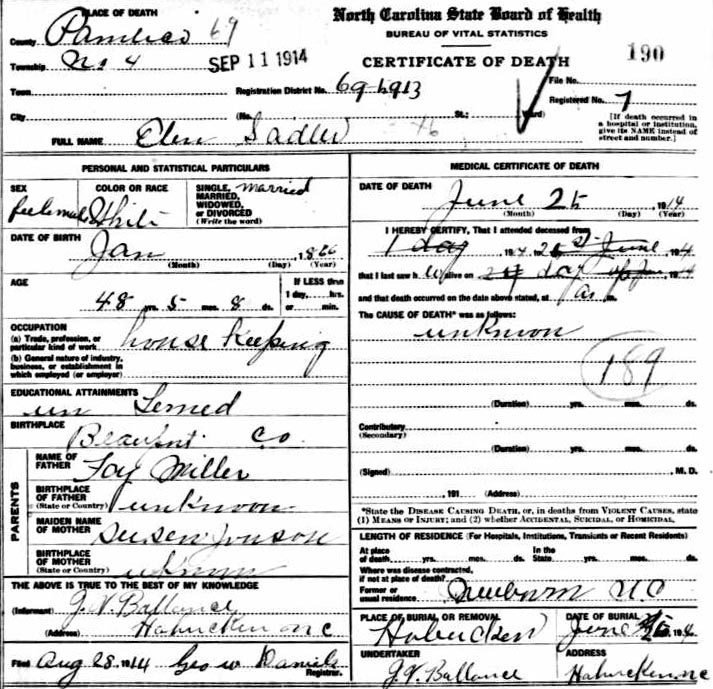 PLACE OF DEATH
North Carolina State Board of Health
BUREAU OF VITAL STATISTICS
CERTIFICATE OF DEATH
190
County Pamlico 69
Township No 4
SEP 11 1914
Town
Registration District No. 69-4913
File No.
Registered No. 7
City
(No. St.; Ward)
[If death occurred in a hospital or institution, give its NAME instead of street and number.]
FULL NAME Elen Sadler
PERSONAL AND STATISTICAL PARTICULARS
SEX feelemale
COLOR OR RACE White
SINGLE, MARRIED, WIDOWED, OR DIVORCED (Write the word) married
DATE OF BIRTH
Jan 1866
(Month) (Day) (Year)
AGE
48 yrs. 5 mos. 8 ds.
If LESS than 1 day, hrs. or min.
OCCUPATION
(a) Trade, profession, or particular kind of work house keeping
(b) General nature of industry, business, or establishment in which employed (or employer)
EDUCATIONAL ATTAINMENTS
un Lerned
BIRTHPLACE
Beaufort Co
PARENTS
NAME OF FATHER Foy Miller
BIRTHPLACE OF FATHER (State or Country) unknoon
MAIDEN NAME OF MOTHER Susen Jonson
BIRTHPLACE OF MOTHER (State or Country)
THE ABOVE IS TRUE TO THE BEST OF MY KNOWLEDGE
(Informant) J.V. Ballance
(Address)
Filed Aug 28 1914 Geo W Daniels
Registrar.
MEDICAL CERTIFICATE OF DEATH
DATE OF DEATH
June 25 1914
(Month) (Day) (Year)
I HEREBY CERTIFY, That I attended deceased from
1 day 1914 June 1914
that I last saw h alive on day
and that death occurred on the date above stated, at m.
The CAUSE OF DEATH* was as follows:
unknoon
189
(Duration) yrs. mos. ds.
Contributory (Secondary)
(Duration) yrs. mos. ds.
(Signed) M. D.
191 (Address)
*State the DISEASE CAUSING DEATH, or, in deaths from VIOLENT CAUSES, state (1) MEANS OF INJURY; and (2) whether ACCIDENTAL, SUICIDAL, or HOMICIDAL.
LENGTH OF RESIDENCE (For Hospitals, Institutions, Transients or Recent Residents)
At place of death yrs. mos. ds. In the State yrs. mos. ds.
Where was disease contracted, if not at place of death?
Former or usual residence Newborn N C
PLACE OF BURIAL OR REMOVAL
Hobucken
DATE OF BURIAL
June 1914
UNDERTAKER
J.V. Ballance
ADDRESS